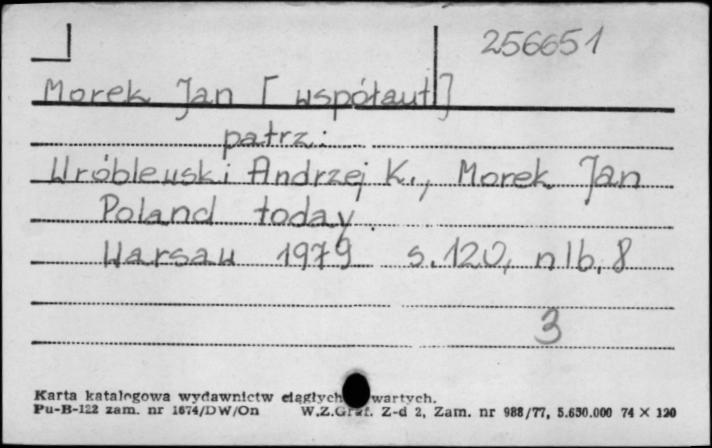 256651
Morek Jan [współaut]
patrz:
Wróblewski Andrzej K., Morek Jan
Poland today.
Warsaw 1979 s. 120, nlb. 8
3
Karta katalogowa wydawnictw ciągłych wartych.
Pu-B-122 zam. nr 1674/DW/On W.Z.Graf. Z-d 2, Zam. nr 988/77, 5.650.000 74 × 120